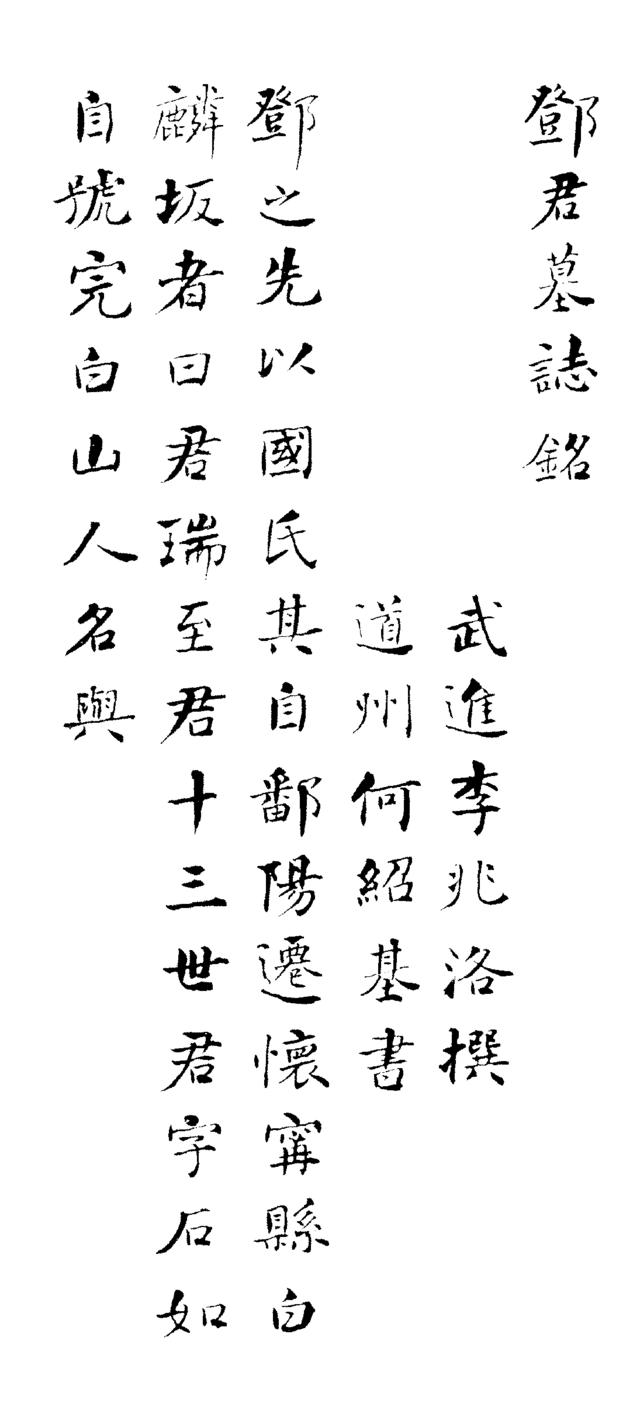 鄧君墓誌銘
武進李兆洛撰
道州何紹基書
鄧之先以國氏其自鄱陽遷懷甯縣白
麟坂者曰君瑞至君十三世君字石如
自號完白山人名與